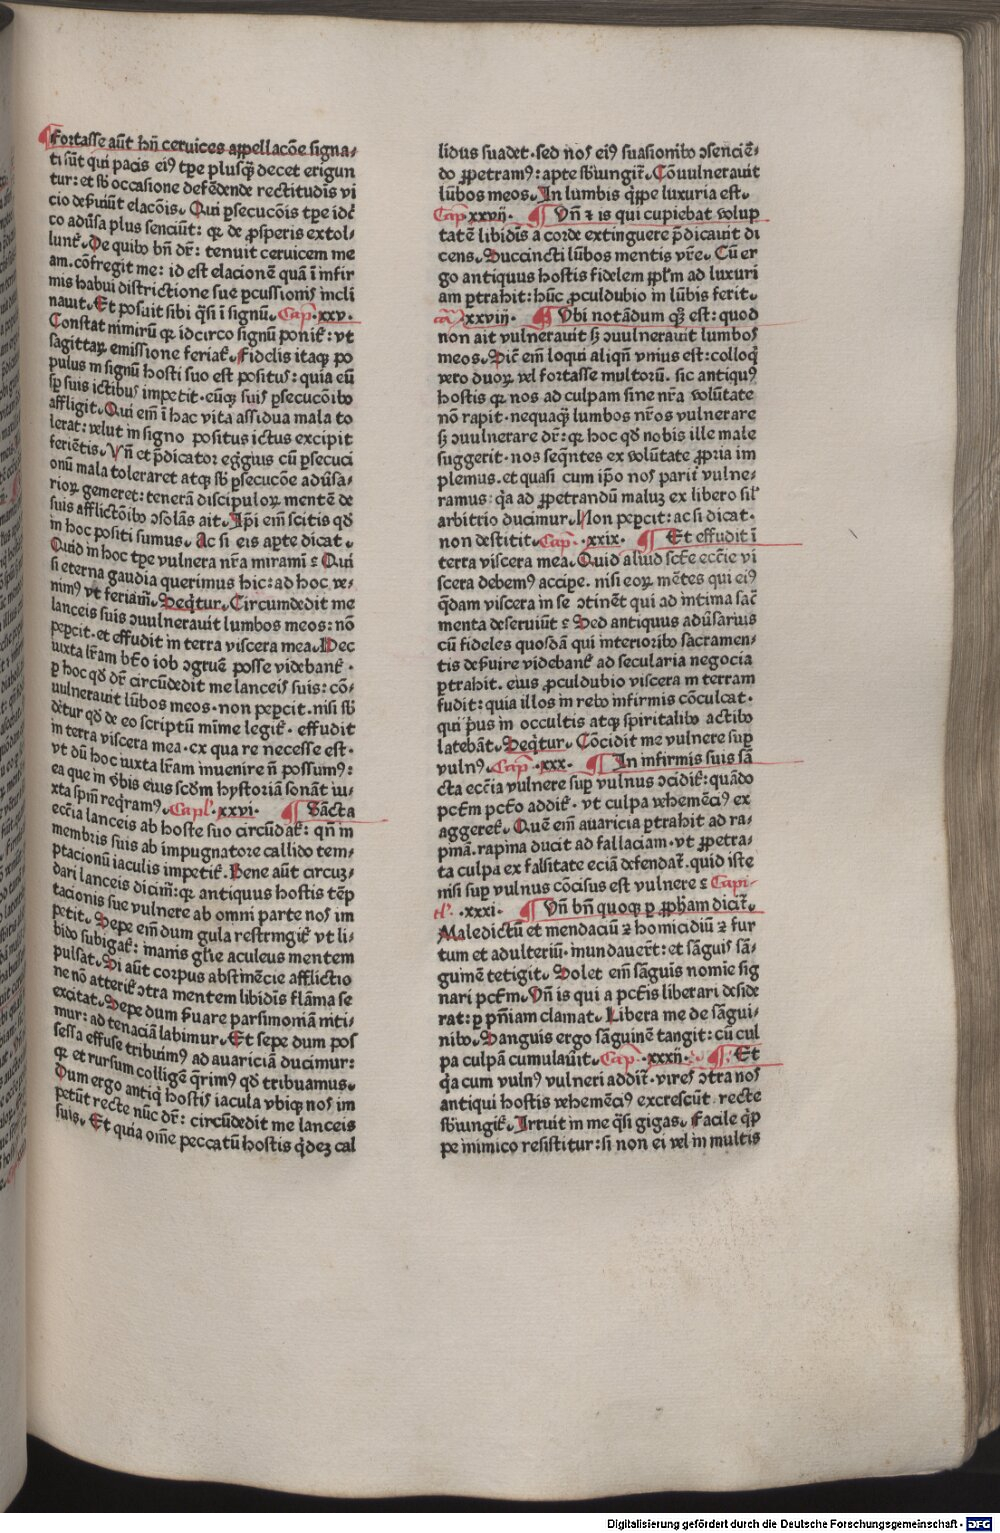 ¶Fortasse aũt hñ cervices appellacõe signa⸗
ti sũt qui pacis ei⁹ tꝑe plusq̃ decet erigun
tur: et sb̃ occasione defẽdende rectitudis vi
cio deſuiũt elacõis. Qui ꝑsecucõis tꝑe idc̃
co adũsa plus senciũt: qꝛ de ꝓsperis extol⸗
lunt̃. De quibꝰ bñ dr̃: tenuit cervicem me
am. cõfregit me: id est elacionẽ quã ĩ infir
mis habui districtione sue ꝑcussionis incli
nauit. Et posuit sibi q̃si ĩ signũ. Cap̃ .xxv.
Constat nimirũ qꝛ idcirco signũ ponit̃: vt
sagittaꝝ emissione feriat̃. Fidelis itaqꝫ po
pulus in signũ hosti suo est positus: quia eũ
sp̃ suis ictibus impetit. eũqꝫ suis ꝑsecucõibꝰ
affligit. Qui em̃ ĩ hac vita assidua mala to
lerat: velut in signo positus ictus excipit
feriẽtis. Vñ et p̃dicator egg̃ius cũ ꝑsecuci
onũ mala toleraret atqꝫ sb̃ ꝑsecucõe adũsa⸗
rioꝝ gemeret: tenerã discipuloꝝ mentẽ de
suis afflictõibꝰ ↄsolãs ait. Ip̃i em̃ scitis qd̃
in hoc positi sumus. Ac si eis aꝑte dicat.
Quid in hoc tꝑe vulnera nr̃a miramĩ ⸮ Qui
si eterna gaudia querimus hic: ad hoc ve⸗
nim⁹ vt feriam̃. Seq̃tur. Circumdedit me
lanceis suis ↄuulnerauit lumbos meos: nõ
peꝑcit. et effudit in terra viscera mea. Hec
iuxta lr̃am bt̃o iob ↄgruẽ posse videbant̃.
ꝑ hoc qd̃ dr̃ circũdedit me lanceis suis: cõ⸗
uulnerauit lũbos meos. non peꝑcit. nisi sb̃
dẽtur qd̃ de eo scriptũ mĩme legit̃. effudit
in terra viscera mea. ex qua re necesse est.
vt dũ hoc iuxta lr̃am inuenire ñ possum⁹:
ea que in ṽbis eius scd̃m hystoriã sonãt iu⸗
xta spm̃ reqr̃am⁹. Capl̃ .xxvi. ¶ Sãcta
ecc̃ia lanceis ab hoste suo circũdat̃. qñ in
membris suis ab impugnatore callido tem⸗
ptacionũ iaculis impetit̃. Bene aũt circuꝫ⸗
dari lanceis dicim̃: qꝛ antiquus hostis tẽp
tacionis sue vulnere ab omni parte nos im
petit. Sepe em̃ dum gula restringit̃ vt li⸗
bido subigat̃: inanis gl̃ie aculeus mentem
pulsat. Si aũt corpus abstinẽcie afflictio
ne nõ atterit̃ ↄtra mentem libidis flãma se
excitat. Sepe dum ſuare parsimoniã niti⸗
mur: ad tenaciã labimur. Et sepe dum pos
sessa effuse tribuim⁹ ad auariciã ducimur:
qꝛ et rursum colligẽ q̃rim⁹ qd̃ tribuamus.
Dum ergo antiq̃ hostis iacula vbiqꝫ nos im
petũt recte nũc dr̃: circũdedit me lanceis
suis. Et quia om̃e peccatũ hostis q̃deꝫ cal
lidus suadet. sed nos ei⁹ suasionibꝰ ↄsenciẽ⸗
do ꝑpetram⁹: apte sb̃iungit̃. Cõuulnerauit
lũbos meos. In lumbis q̃ppe luxuria est.
Cap̃ xxvij. ¶ Vñ ⁊ is qui cupiebat volup
tatẽ libidis a corde extinguere p̃dicauit di
cens. Succincti lũbos mentis vr̃e. Cũ er
go antiquus hostis fidelem ppl̃m ad luxuri
am ꝑtrahit: hũc ꝓculdubio in lũbis ferit.
ca⁰ xxviij. ¶ Vbi notãdum qꝫ est: quod
non ait vulnerauit sꝫ ↄuulnerauit lumbos
meos. Sic̃ em̃ loqui aliqñ vnius est: colloq̃
vero duoꝝ vel fortasse multorũ. sic antiqu⁹
hostis qꝛ nos ad culpam sine nr̃a volũtate
nõ rapit. nequaq̃ lumbos nr̃os vulnerare
sꝫ ↄuulnerare dr̃: qꝛ hoc qd̃ nobis ille male
suggerit. nos seq̃ntes ex volũtate ꝓpria im
plemus. et quasi cum ip̃o nos parit̃ vulne⸗
ramus: q̃a ad ꝑpetrandũ maluꝫ ex libero sil̃
arbitrio ducimur. Non peꝑcit: ac si dicat.
non destitit. Cap̃. .xxix. ¶ Et effudit ĩ
terra viscera mea. Quid aliud sct̃e ecc̃ie vi
scera debem⁹ accipe. nisi eoꝝ mẽtes qui ei⁹
q̃dam viscera in se ↄtinẽt qui ad intima sac̃
menta deseruiũt ⸮ Sed antiquus adũsarius
cũ fideles quosdã qui interioribꝰ sacramen⸗
tis deſuire videbant̃ ad secularia negocia
ꝑtrahit. eius ꝓculdubio viscera in terram
fudit: quia illos in rebꝰ infirmis cõculcat.
qui pⁱus in occultis atqꝫ spiritalibꝰ actibꝰ
latebãt. Seq̃tur. Cõcidit me vulnere suꝑ
vuln⁹. Cap̃ .xxx. ¶ In infirmis suis sã
cta ecc̃ia vulnere suꝑ vulnus ↄcidit̃: quãdo
pct̃m pct̃o addit̃. vt culpa vehemẽci⁹ ex
aggeret̃. Quẽ em̃ auaricia ꝑtrahit ad ra⸗
pinã. rapina ducit ad fallaciam. vt ꝑpetra⸗
ta culpa ex falsitate eciã defendat̃. quid iste
nisi suꝑ vulnus cõcisus est vulnere ⸮ Capi⸗
tl̃. .xxxi. ¶ Vñ bñ quoqꝫ ꝑ ꝓph̃am dicit̃.
Maledictũ et mendaciũ ⁊ homicidiũ ⁊ fur
tum et adulteriũ. inundauer̃t: et sãguis sã⸗
guinẽ tetigit. Solet em̃ sãguis nomie sig
nari pct̃m. Vñ is qui a pct̃is liberari deside
rat: ꝑ pñiam clamat. Libera me de sãgui⸗
nibꝰ. Sanguis ergo sãguinẽ tangit: cũ cul
pa culpã cumulauit̃. Cap̃. .xxxij. ¶ Et
q̃a cum vuln⁹ vulneri addit̃. vires ↄtra nos
antiqui hostis vehemẽci⁹ excrescũt. recte
sb̃iungit̃. Irruit in me q̃si gigas. Facile q̃p
pe inimico resistitur: si non ei vel in multis
Digitalisierung gefördert durch die Deutsche Forschungsgemeinschaft - DFG